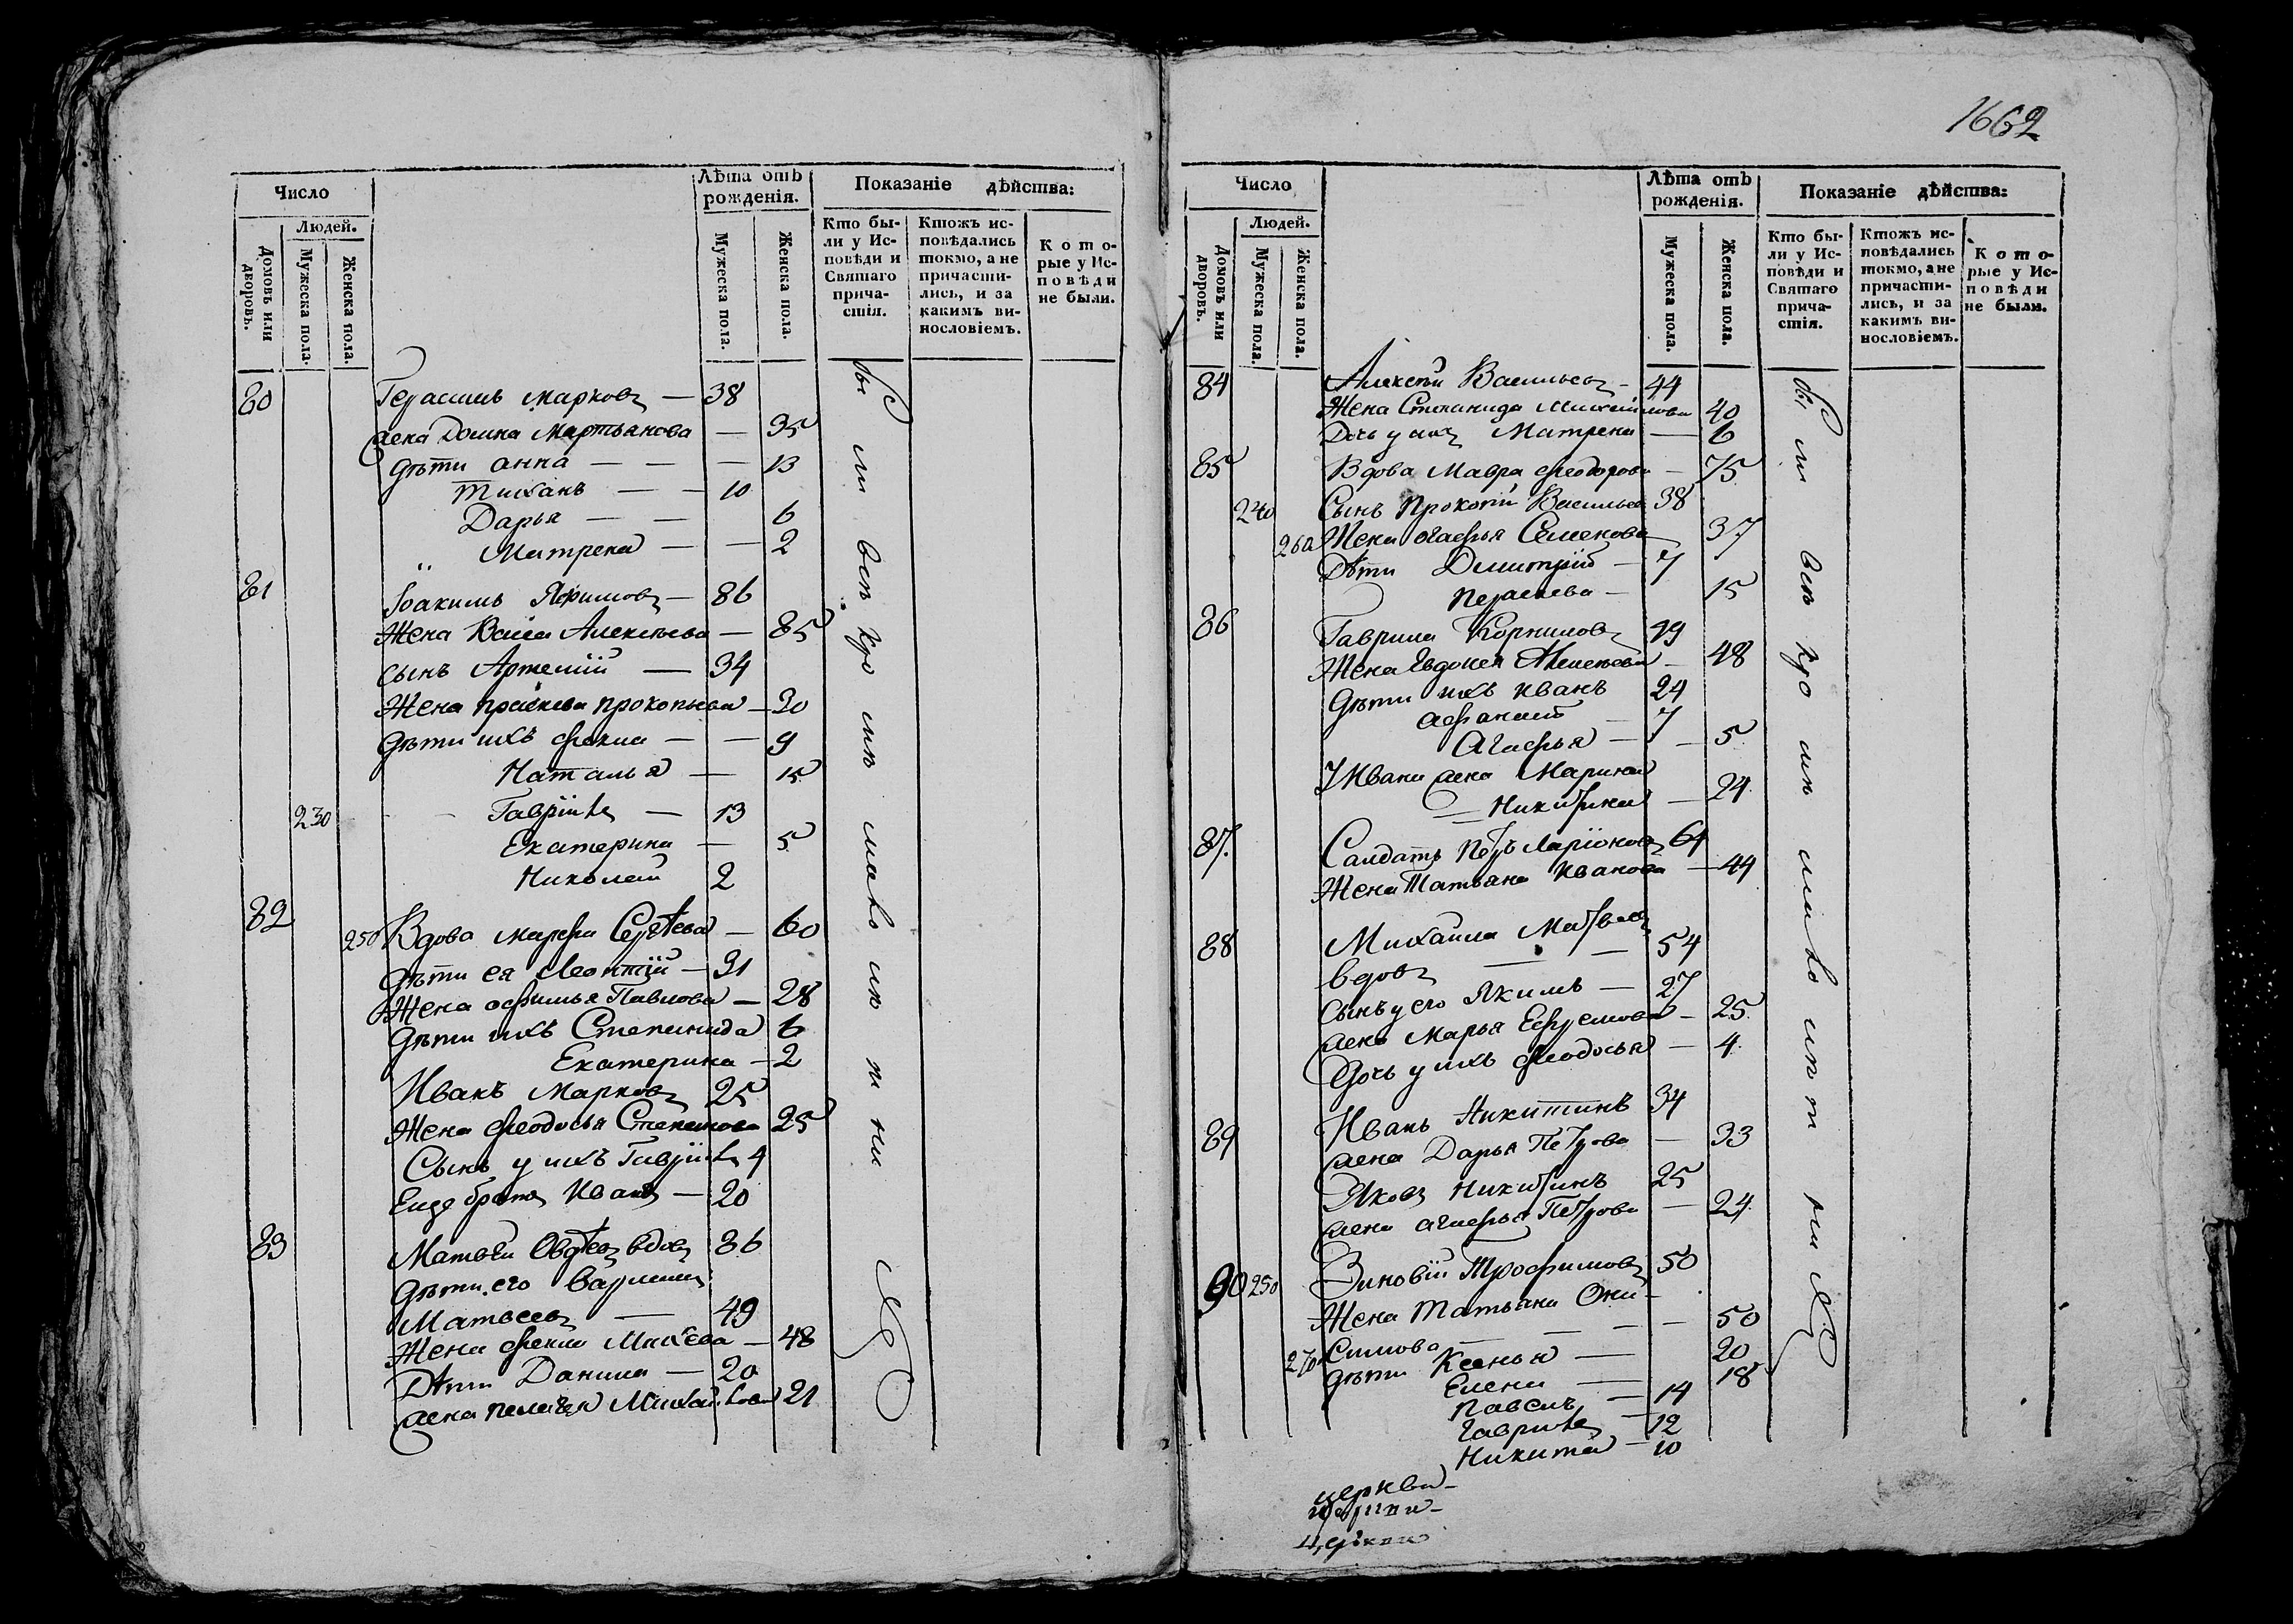 Число
Людей.
Домовъ или дворовъ.
Мужеска пола.
Женска пола.
Лѣта отъ рожденія.
Мужеска пола.
Женска пола.
Показаніе дѣйства:
Кто бы-
ли у Ис-
повѣди и
Святаго
прича-
стія.
Ктожъ ис-
повѣдались
токмо, а не
причасти-
лись, и за
какимъ ви-
нословіемъ.
Кото-
рые у Ис-
повѣди
не были.
80 Герасимъ Марковъ — 38
жена Домна Мартьанова — 35
дѣти анна — — — 13
Тиханъ — — 10
Дарья — — 6
Матрена — — 2
81 Іоакимъ Якимовъ — 86
Жена Алексѣева — 85
сынъ Артемій — 34
Жена прасковьи прокопьева — 30
дѣти ихъ — — 9
Наталья — 15
230 Гаврііла — 13
Екатерина — 5
Николай 2
82 250 Вдова марфа Сергѣева — 60
дѣти ея Леонтій — 31
Жена офимья Павлова — 28
дѣти ихъ Степанида 6
Екатерина — 2
Иванъ Марковъ 25
Жена феодосья Степанова 25
Сынъ у ихъ Гавріила 4
Еще братъ Иванъ — 20
83 Матвѣй Овдѣевъ вдовъ 86
дѣти его
Матвеевъ — 49
Жена Михѣева — 48
Дѣти Данила — 20
жена пелагея Михайлова 21
бы ли всѣ кро мѣ мало лѣ т ни хъ
1662
Число
Людей.
Домовъ или дворовъ.
Мужеска пола.
Женска пола.
Лѣта отъ рожденія.
Мужеска пола.
Женска пола.
Показаніе дѣйства:
Кто бы-
ли у Ис-
повѣди и
Святаго
прича-
стія.
Ктожъ ис-
повѣдались
токмо, а не
причасти-
лись, и за
какимъ ви-
нословіемъ.
Кото-
рые у Ис-
повѣди
не были.
84 Алексѣй Васильевъ — 44
Жена Степанида Михайлова 40
Дочь у ихъ Матрена — 6
85 Вдова Мавра феодорова — 75
240 Сынъ Прокопій Васильевъ 38
260 Жена агафья Семенова 37
Дѣти Димитрій — 7
Параскева — 15
86 Гаврила Корниловъ 49
Жена Евдокея — 48
дѣти ихъ иванъ 24
афанасій — 7
Агафья — — 5
У Ивана жена Марина
Никитина — 24
87. Салдатъ Петръ Ларіоновъ 64
Жена Татьяна Иванова — 44
88 Михаила Матвеевъ
вдовъ — — 54
Сынъ у его Якимъ — 27
жена Марья Ефремова — 25
Дочь у ихъ феодосья — 4
89 Иванъ Никитинъ 34
жена Дарья Петрова — 33
Яковъ Никитинъ 25
жена агафья Петрова — 24
90 250 Зиновій Трофимовъ 50
Жена Татьяна Они-
симова — — — 50
270 дѣти Ксенья — 20
Елена — 18
Павелъ — 14
Гаврила — 12
Никита — 10
бы ли всѣ кро мѣ мало лѣ т ни хъ
церкви